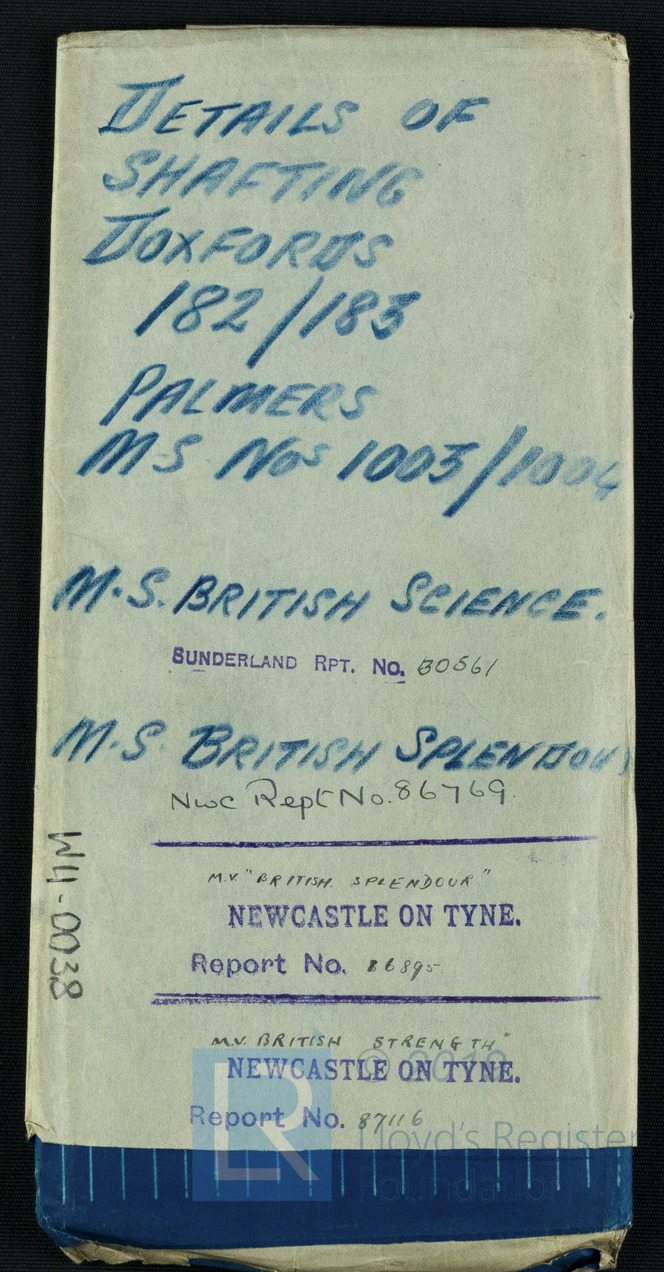 DETAILS OF
SHAFTING
DOXFORDS
182/183
PALMERS
MS Nos 1003/1004
M.S. BRITISH SCIENCE.
SUNDERLAND RPT. No. 30561
M.S. BRITISH SPLENDOU
Nwc Rept No. 86769.
M.V. "BRITISH SPLENDOUR"
NEWCASTLE ON TYNE.
Report No. 86895
M.V. BRITISH STRENGTH"
NEWCASTLE ON TYNE.
Report No. 87116
W11-0038
© 2019
LR
Lloyd's Register
Foundation